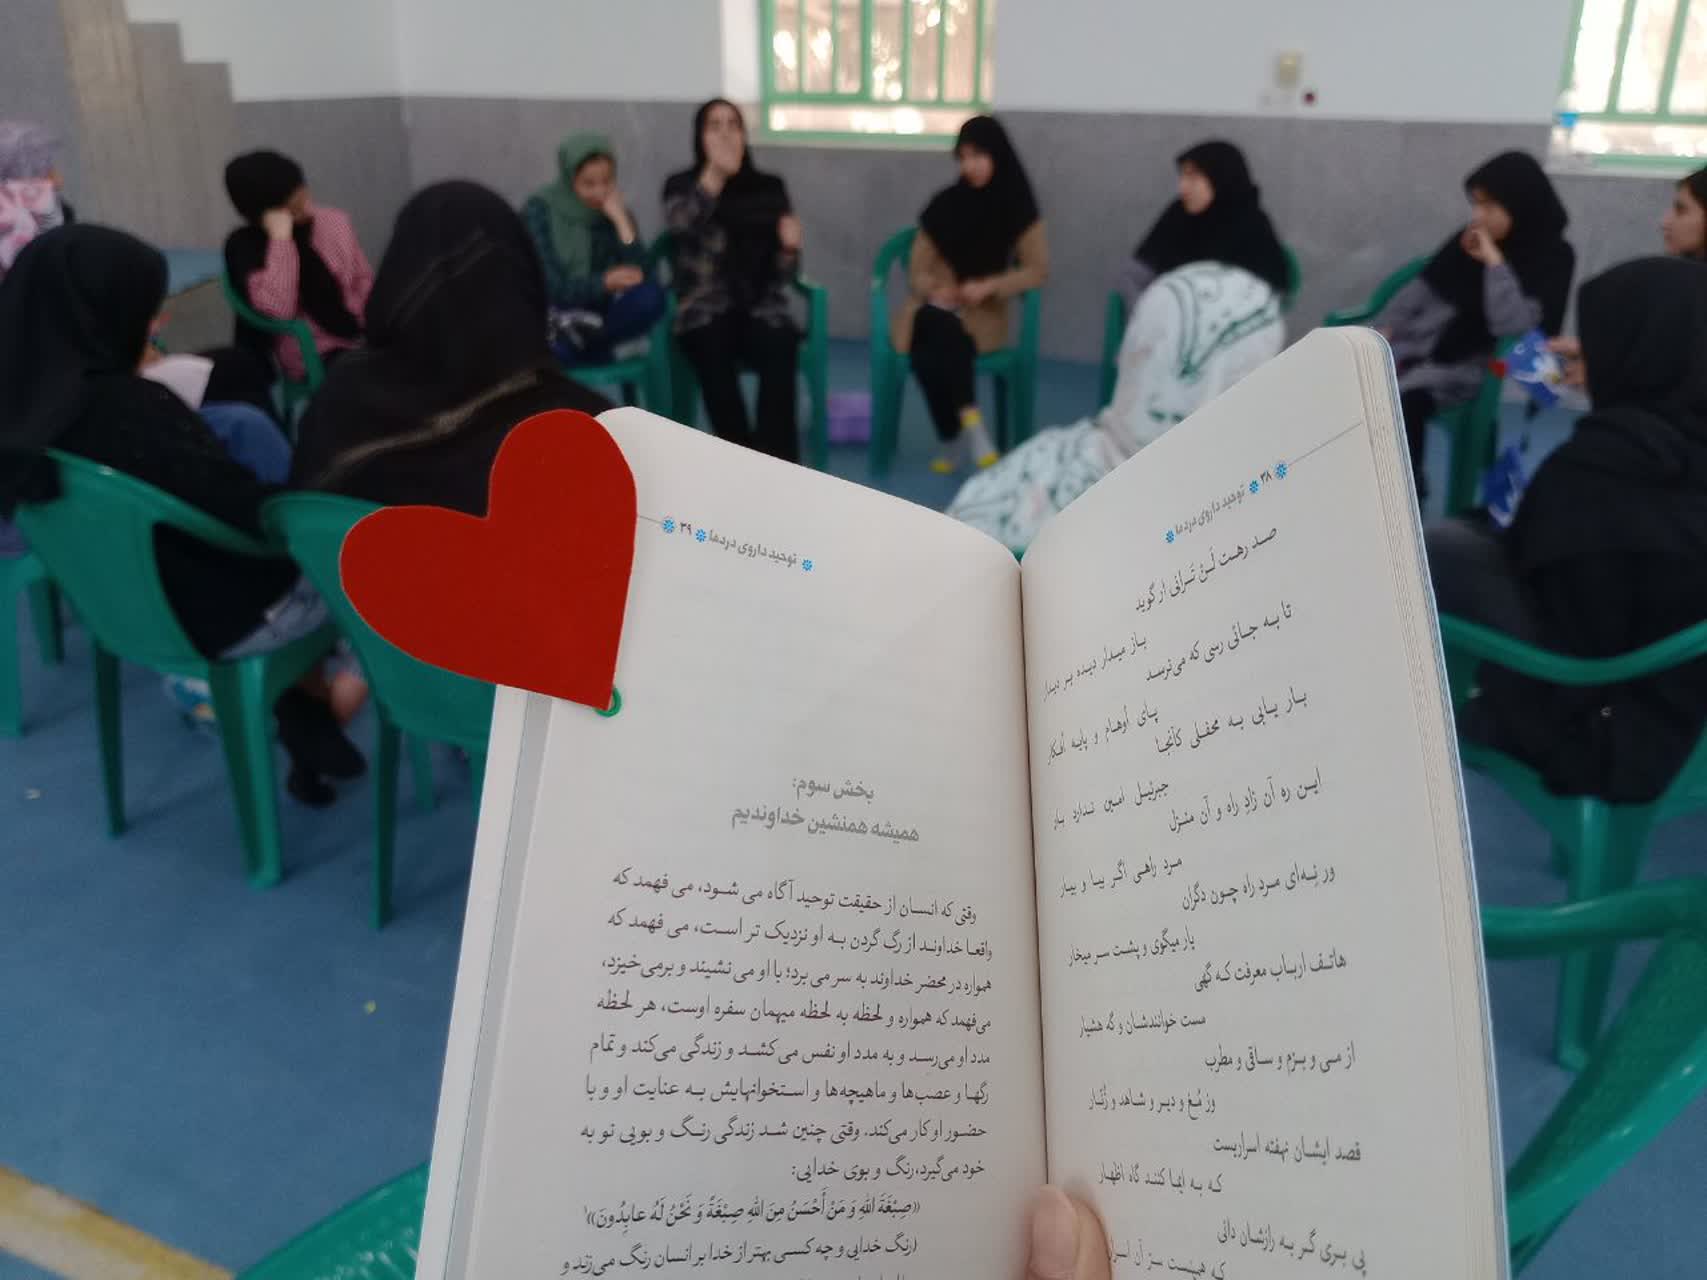 ۳۸ توحید داروی دردها
صد رهت لَنْ تَرانی ار گوید
باز میدار دیده بر دیدار
تا به جائی رسی که می‌نرسد
پای اَوهام و پایه اَفکار
بار یابی به محفلی کآنجا
جبرئیل امین ندارد بار
این ره آن زادِ راه و آن منزل
مرد راهی اگر بیا و بیار
ور نِه‌ای مرد راه چون دگران
یار میگوی و پشت سر میخار
هاتف ارباب معرفت که گهی
مست خوانندشان و گه هشیار
از می و بزم و ساقی و مطرب
وز مُغ و دیر و شاهد و زُنّار
قصد ایشان نهفته اسراریست
که به ایما کنند گاه اظهار
پی بری گر به رازشان دانی
که همینست سرّ آن
توحید داروی دردها ۳۹
بخش سوم:
همیشه همنشین خداوندیم
وقتی که انسان از حقیقت توحید آگاه می شود، می فهمد که
واقعا خداوند از رگ گردن به او نزدیک تر است، می فهمد که
همواره در محضر خداوند به سر می برد؛ با او می نشیند و برمی‌خیزد،
می‌فهمد که همواره و لحظه به لحظه میهمان سفره اوست، هر لحظه
مدد او می‌رسد و به مدد او نفس می‌کشد و زندگی می‌کند و تمام
رگها و عصب‌ها و ماهیچه‌ها و استخوانهایش به عنایت او و با
حضور او کار می‌کند. وقتی چنین شد زندگی رنگ و بویی نو به
خود می‌گیرد، رنگ و بوی خدایی:
«صِبْغَةَ اللهِ وَ مَنْ أَحْسَنُ مِنَ اللهِ صِبْغَةً وَ نَحْنُ لَهُ عابِدُونَ»¹
(رنگ خدایی و چه کسی بهتر از خدا بر انسان رنگ می‌زند و